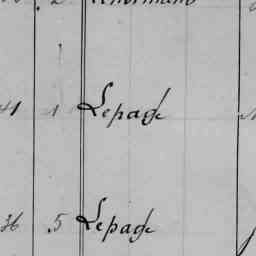 41 1 Lepage
36 5 Lepage